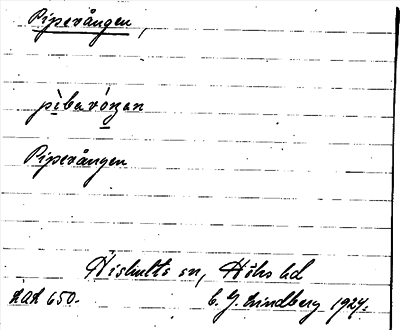 Pipevången,
pìbavóŋan
Pipevången
Hishults sn, Höks hd
kat 650. C. G. Lindberg 1924.